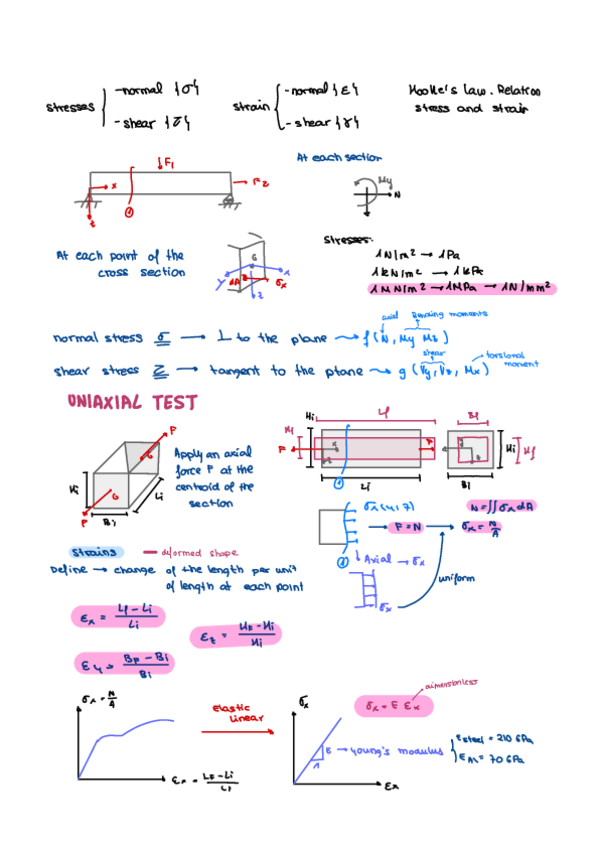 stresses
-normal {σ}
-shear {τ}
strain
-normal {ε}
-shear {γ}
Hooke's Law. Relation
stress and strain
F1
F2
x
z
1
At each section
My
N
At each point of the
cross section
G
y
dA
x
σx
z
Stresses:
1N/m² → 1Pa
1kN/m² → 1kPa
1MN/m² → 1MPa → 1N/mm²
axial Bending moments
normal stress σ → ⊥ to the plane → f(N, My Mz)
shear
torsional
moment
shear stress τ → tangent to the plane → g(Vy, Vz, Mx)
UNIAXIAL TEST
P
G
G
P
Hi
Bi
Li
Apply an axial
force P at the
centroid of the
section
Hi
Lf
Hf
P
x
z
P
Li
1
Bf
y
z
Hi
Hf
Bi
σx(y,z)
P=N
N=∬σx dA
σx = N/A
1
Axial → σx
σx
uniform
Strains — deformed shape
Define → change of the length per unit
of length at each point
εx = Lf - Li / Li
εz = Hf - Hi / Hi
εy = Bf - Bi / Bi
σx = N/A
εx = Lf - Li / Li
elastic
linear
σx
E
1
→ young's modulus
εx
σx = E εx
dimensionless
Esteel = 210 GPa
EAl = 70 GPa